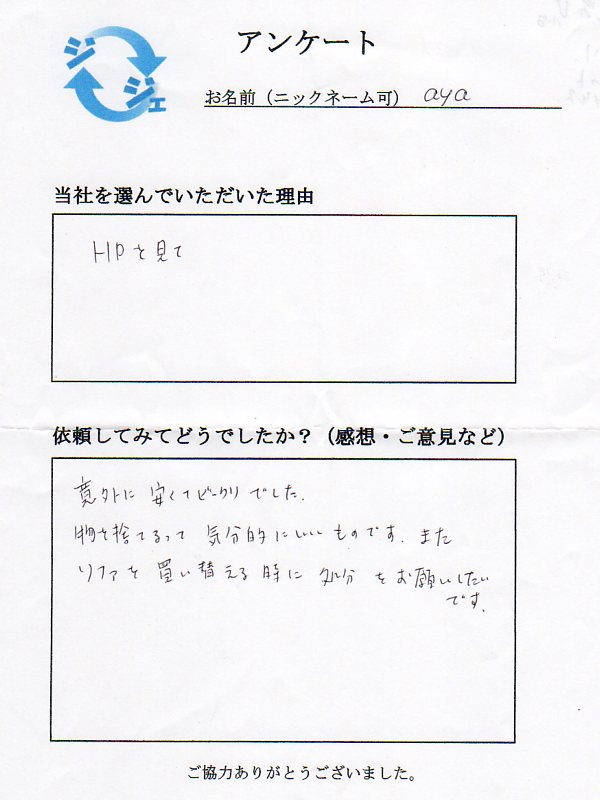 ジジェ
アンケート
お名前（ニックネーム可） aya
当社を選んでいただいた理由
HPを見て
依頼してみてどうでしたか？（感想・ご意見など）
意外に安くてビックリでした.
物を捨てるって気分的にいいものです. また
ソファを買い替える時に処分をお願いしたい
です.
ご協力ありがとうございました。